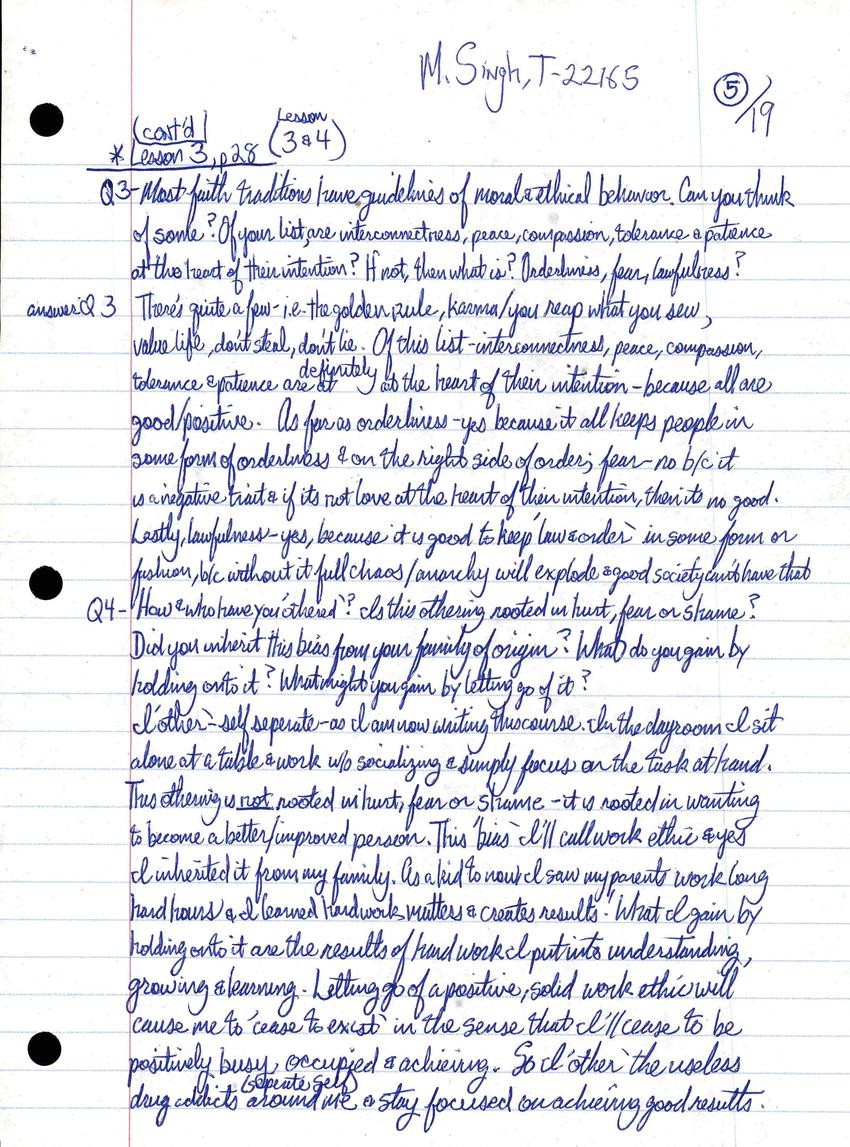 M. Singh, T-22165
5/19
(cont'd)
* Lesson 3, p28 (Lesson 3 & 4)
Q3- Most faith traditions have guidelines of moral & ethical behavior. Can you think
of some? Of your list, are interconnectness, peace, compassion, tolerance & patience
at the heart of their intention? If not, then what is? Orderliness, fear, lawfulness?
answer: Q3 There's quite a few - i.e. the golden rule, karma/you reap what you sew,
value life, don't steal, don't lie. Of this list - interconnectness, peace, compassion,
tolerance & patience are at definitely at the heart of their intention - because all are
good/positive. As far as orderliness - yes because it all keeps people in
some form of orderliness & on the right side of order; fear - no b/c it
is a negative trait & if its not love at the heart of their intention, then its no good.
Lastly, lawfulness - yes, because it is good to keep 'law & order' in some form or
fashion, b/c without it full chaos/anarchy will explode & good society can't have that
Q4- How & who have you 'othered'? Is this othering rooted in hurt, fear or shame?
Did you inherit this bias from your family of origin? What do you gain by
holding onto it? What might you gain by letting go of it?
I 'other' - self seperate - as I am now writing this course. In the dayroom I sit
alone at a table & work w/o socializing & simply focus on the task at hand.
This othering is not rooted in hurt, fear or shame - it is rooted in wanting
to become a better/improved person. This 'bias' I'll call work ethic & yes
I inherited it from my family. As a kid to now I saw my parents work long
hard hours & I learned hard work matters & creates results. What I gain by
holding onto it are the results of hard work I put into understanding,
growing & learning. Letting go of a positive, solid work ethic will
cause me to 'cease to exist' in the sense that I'll cease to be
positively busy, occupied & achieving. So I 'other' the useless
drug addicts (seperate self) around me & stay focused on achieving good results.